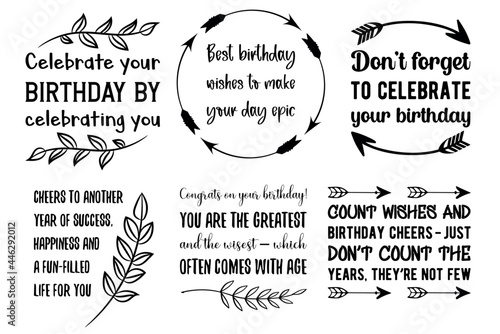 Celebrate your
BIRTHDAY BY
celebrating you
Best birthday
wishes to make
your day epic
Don't forget
TO CELEBRATE
your birthday
CHEERS TO ANOTHER
YEAR OF SUCCESS,
HAPPINESS AND
A FUN-FILLED
LIFE FOR YOU
Congrats on your birthday!
YOU ARE THE GREATEST
and the wisest – which
OFTEN COMES WITH AGE
COUNT WISHES AND
BIRTHDAY CHEERS – JUST
DON'T COUNT THE
YEARS, THEY'RE NOT FEW
Adobe Stock | #446292012